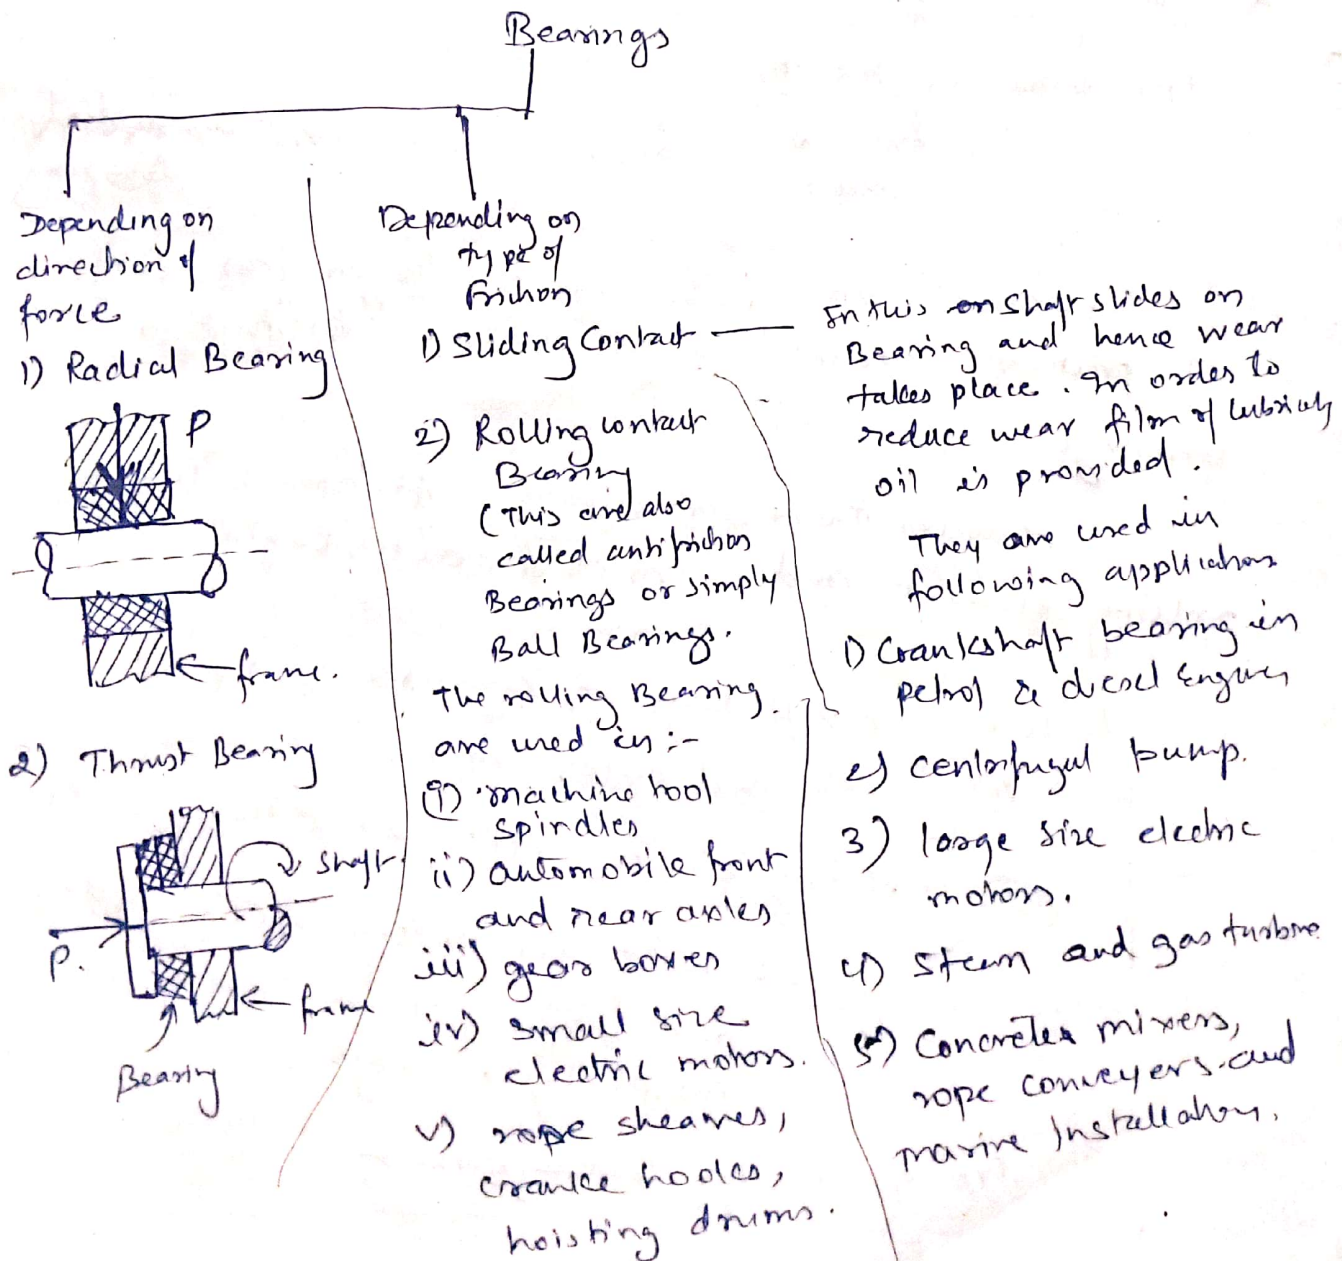 Bearings
Depending on
direction of
force
1) Radial Bearing
P
frame.
2) Thrust Bearing
shaft
P.
frame
Bearing
Depending on
type of
friction
1) Sliding Contact
2) Rolling contact
Bearing
(This are also
called antifriction
Bearings or simply
Ball Bearings.
The rolling Bearing
are used in :-
(i) machine tool
spindles
ii) automobile front
and rear axles
iii) gear boxes
iv) small size
electric motors.
v) rope sheaves,
crane hooks,
hoisting drums.
In this on shaft slides on
Bearing and hence wear
takes place. In order to
reduce wear film of lubricating
oil is provided.
They are used in
following applications
1) Crankshaft bearing in
petrol & diesel Engines
2) centrifugal pump.
3) large size electric
motors.
4) Steam and gas turbine
5) Concrete mixers,
rope conveyers and
marine Installation.